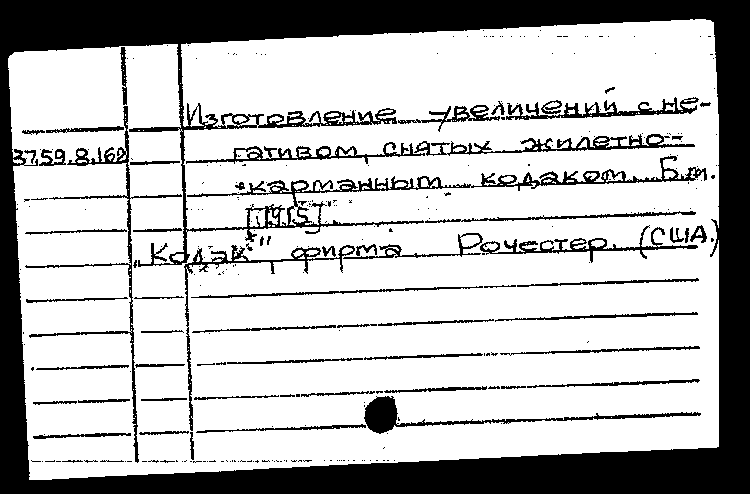 Изготовление увеличений с не-
37.59.8.162 гативом, снятых жилетно-
карманным кодаком. Б.м.
[1915].
„Кодак", фирма. Рочестер. (США.)